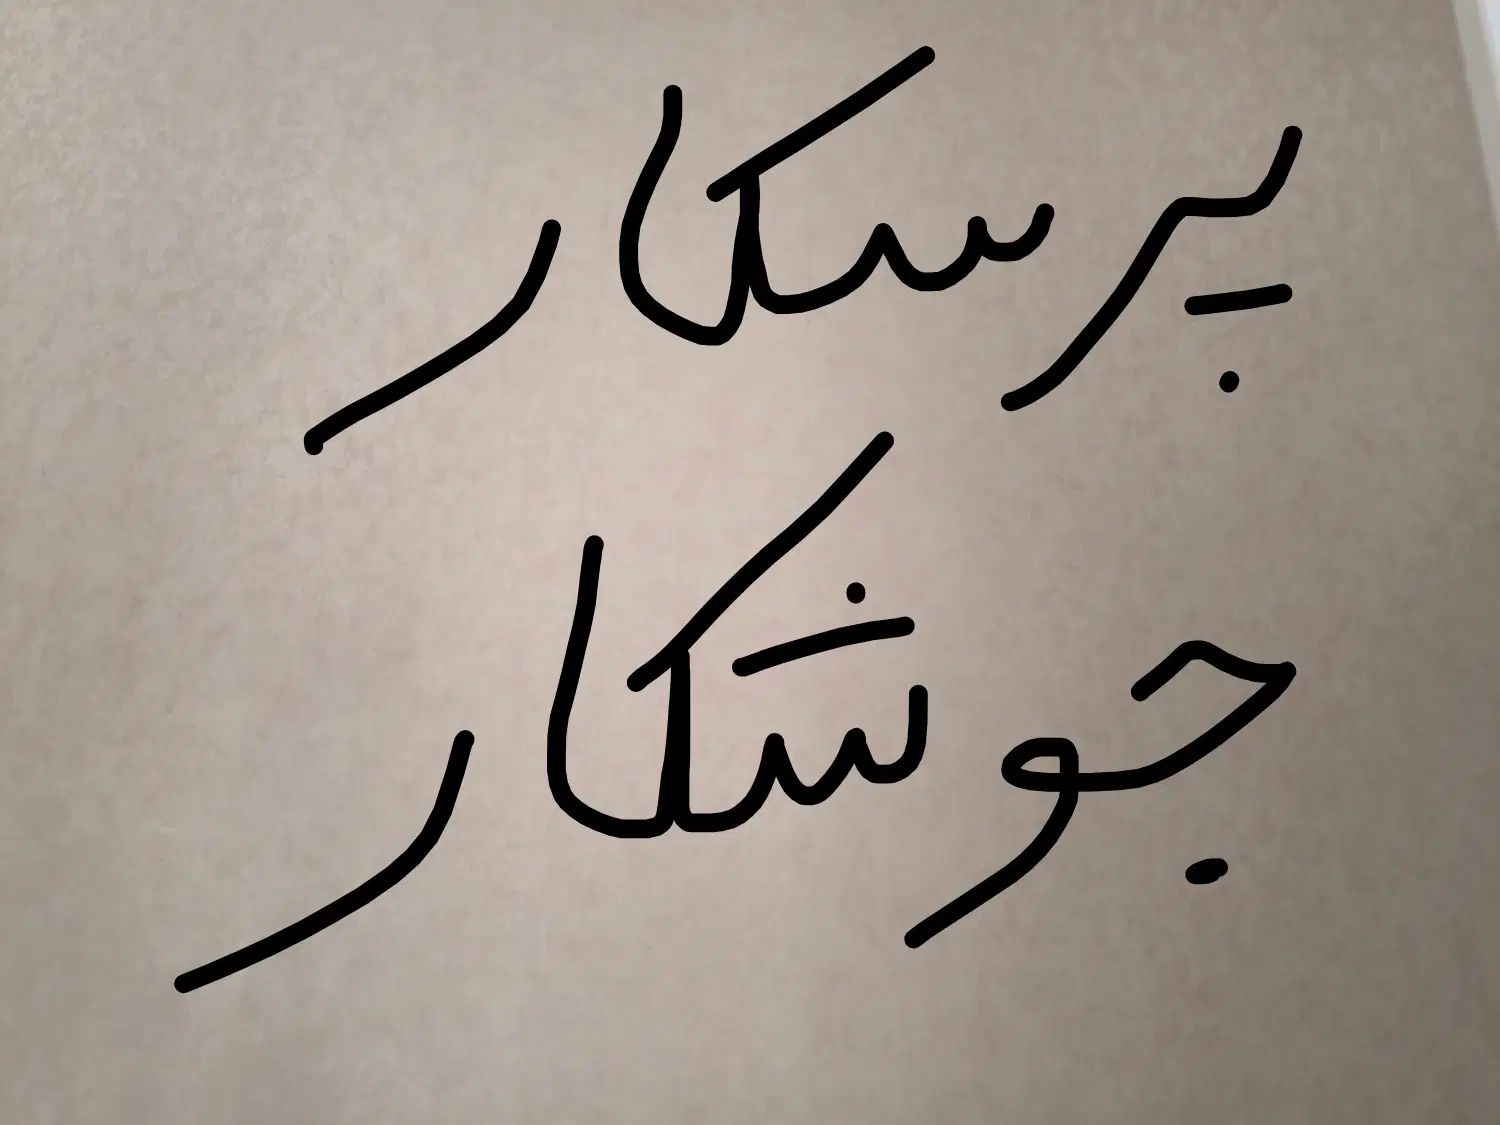 پرسکار
جوشکار